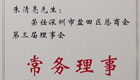 朱清亮先生：
荣任深圳市盐田区总商会
第三届理事会
常务理事